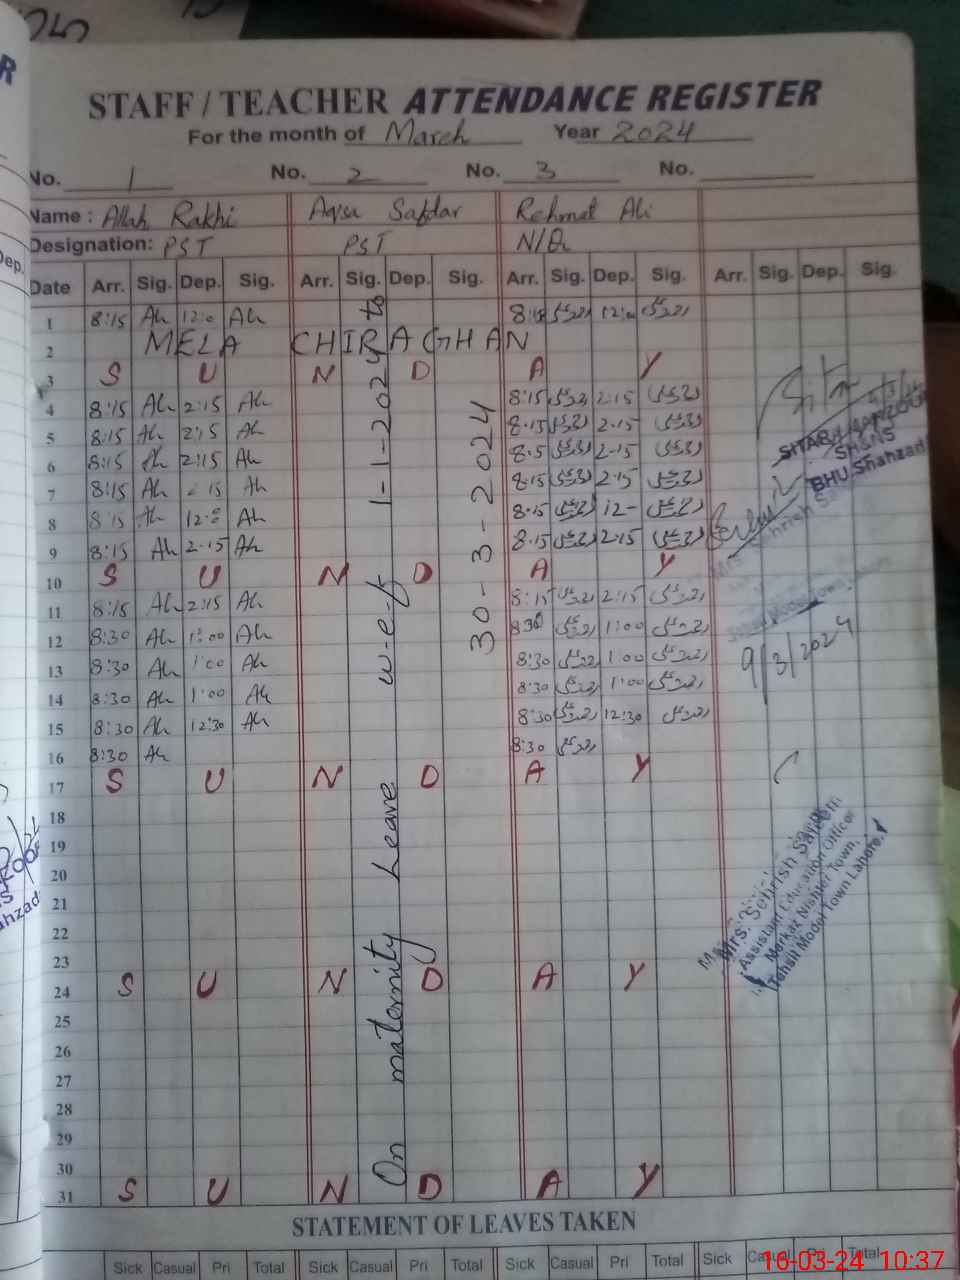 STAFF / TEACHER ATTENDANCE REGISTER
For the month of March Year 2024
No. 1 No. 2 No. 3 No.
Name : Allah Rakhi Aqsa Safdar Rehmat Ali
Designation: PST PST N/Q
Date Arr. Sig. Dep. Sig. Arr. Sig. Dep. Sig. Arr. Sig. Dep. Sig. Arr. Sig. Dep. Sig.
1 8:15 Ah 12:0 Ah 8:15 12:0
2 MELA CHIRAGHAN
3 S U N D A Y
4 8:15 Ah 2:15 Ah 8:15 2:15
5 8:15 Ah 2:15 Ah 8.15 2.15
6 8:15 Ah 2:15 Ah 8.5 2.15
7 8:15 Ah 15 Ah 8.15 2.15
8 8:15 Ah 12:0 Ah 8.15 12-
9 8:15 Ah 2.15 Ah 8.15 2.15
10 S U N D A Y
11 8:15 Ah 2:15 Ah 8:15 2:15
12 8:30 Ah 1:00 Ah 8:30 1:00
13 8:30 Ah 1:00 Ah 8:30 1:00
14 8:30 Ah 1:00 Ah 8:30 1:00
15 8:30 Ah 12:30 Ah 8:30 12:30
16 8:30 Ah 8:30
17 S U N D A Y
18
19
20
21
22
23
24 S U N D A Y
25
26
27
28
29
30
31 S U N D A Y
On maternity Leave w-e-f 1-1-2024 to
30-3-2024
SHSNS
BHU Shahzad
9/3/2024
Mrs. Sehrish Saleem
Assistant Education Officer
Markaz Nishter Town,
Tehsil Model Town Lahore.
STATEMENT OF LEAVES TAKEN
Sick Casual Pri Total Sick Casual Pri Total Sick Casual Pri Total Sick Casual Pri Total
16-03-24 10:37